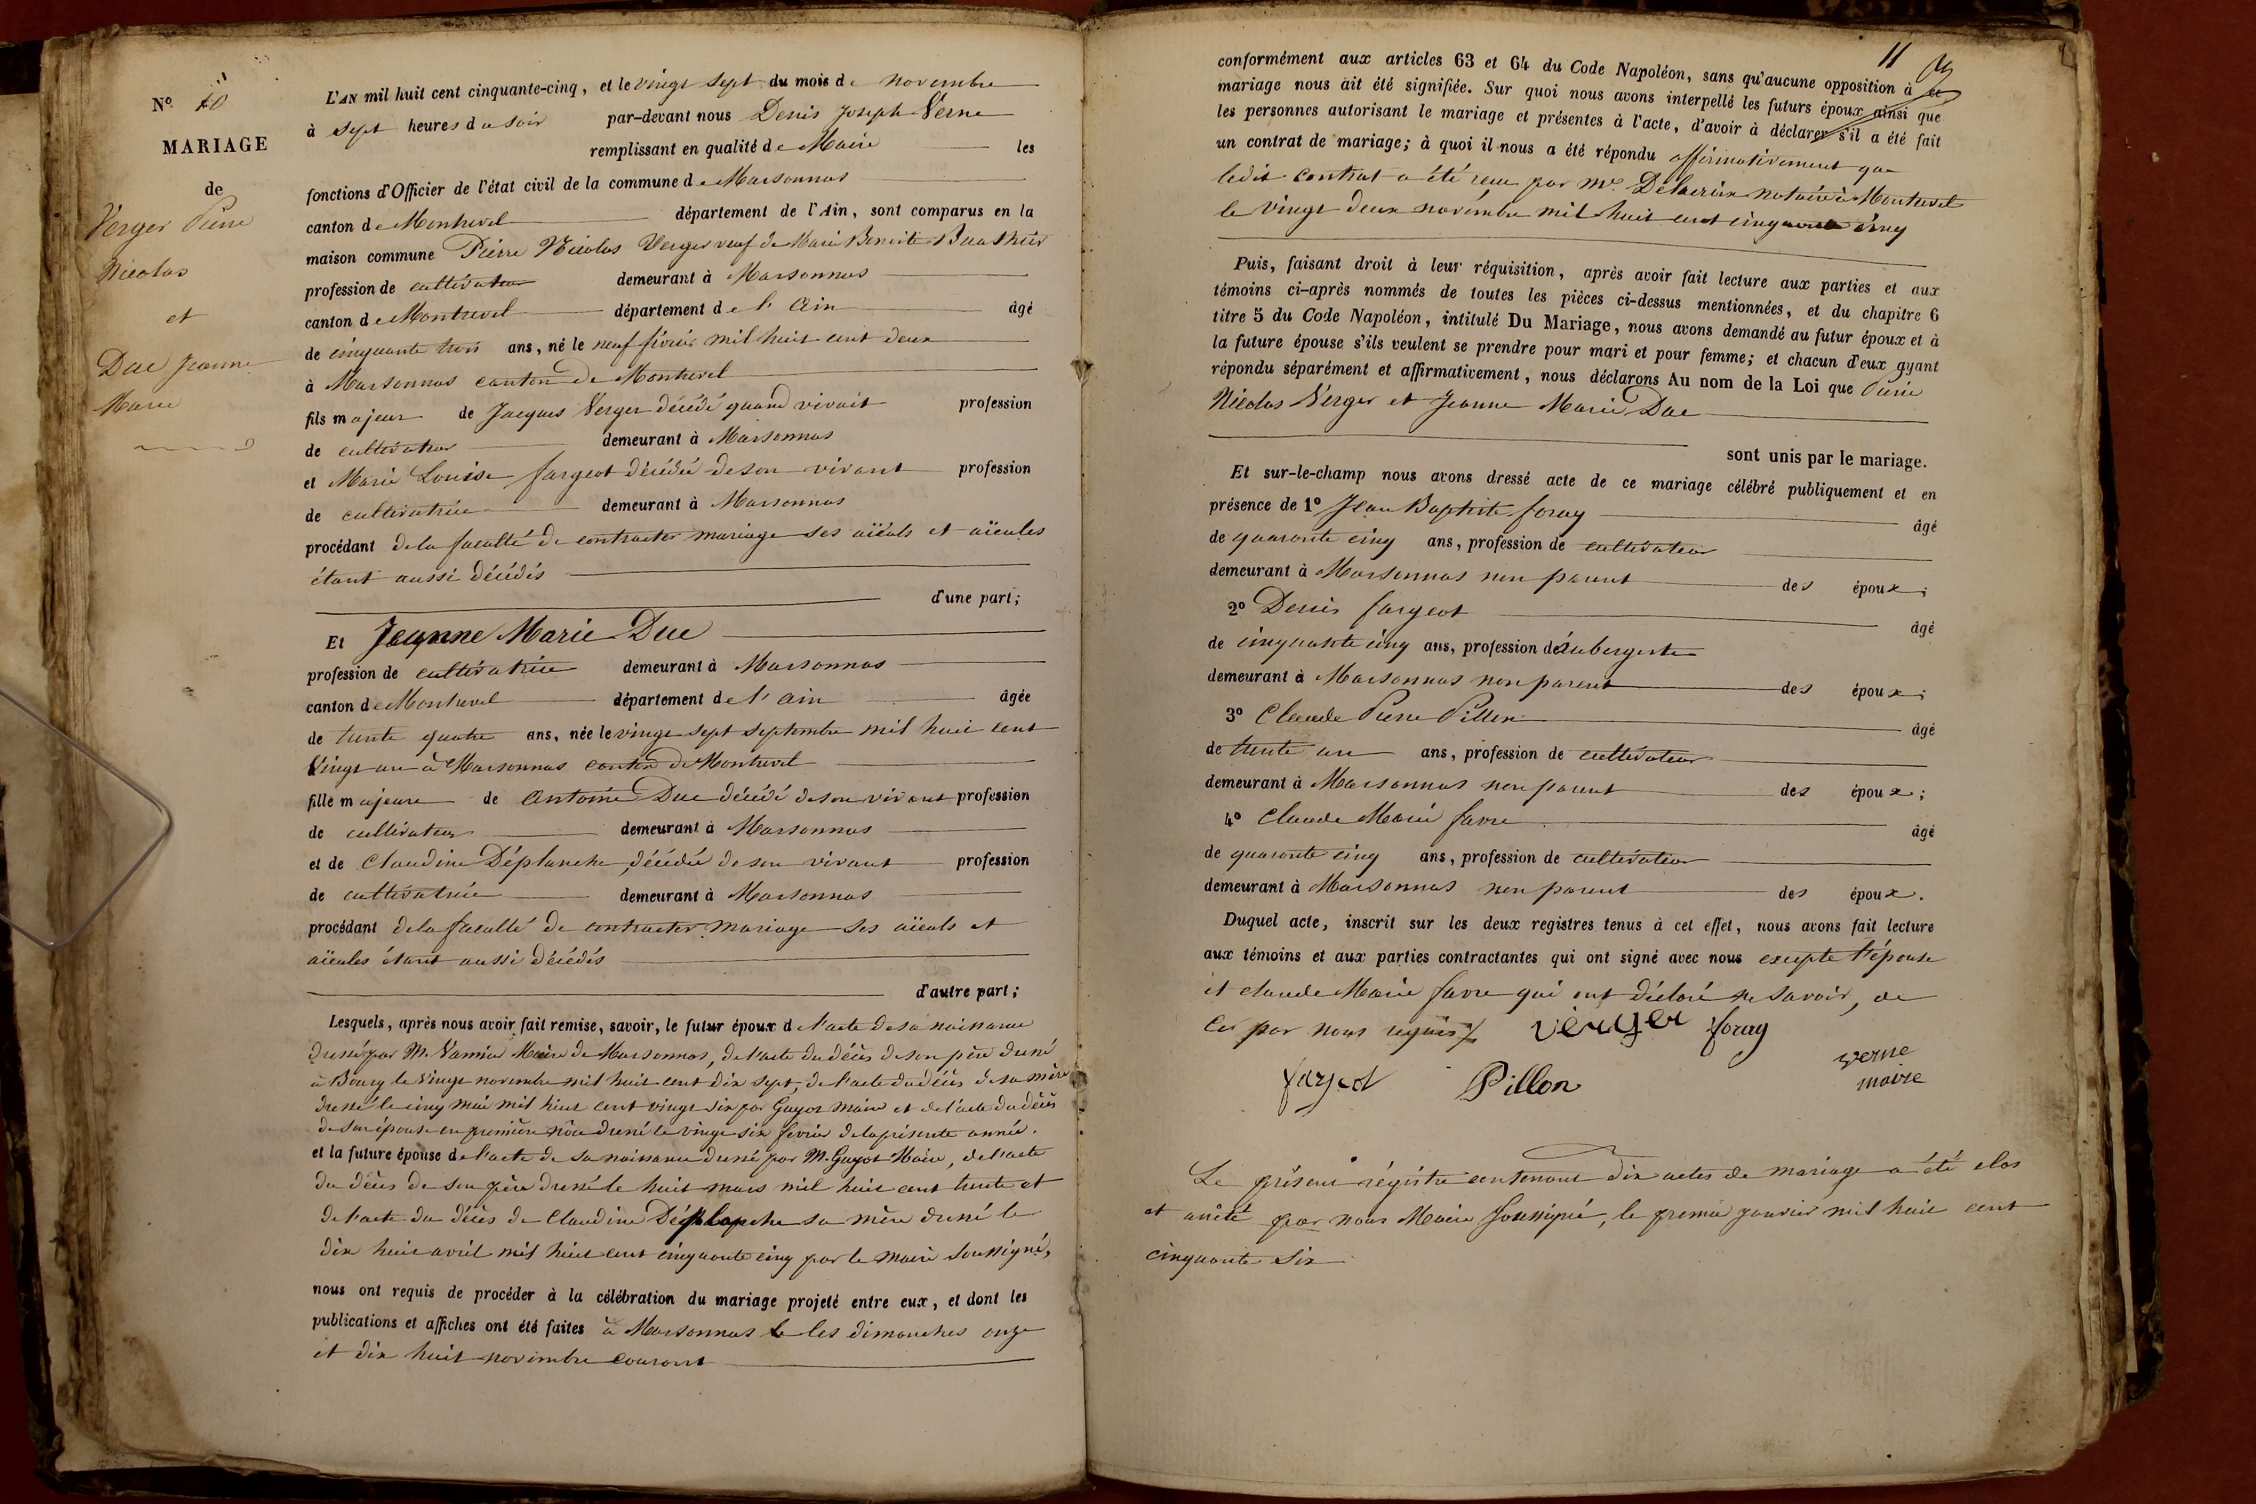 No 10
MARIAGE
de
Verger Pierre
Nicolas
et
Duc Jeanne
Marie
L'AN mil huit cent cinquante-cinq, et le vingt sept du mois de novembre
à sept heures du soir par-devant nous Denis Joseph Verne
remplissant en qualité de Maire les
fonctions d'Officier de l'état civil de la commune de Marsonnas
canton de Montrevel département de l'Ain, sont comparus en la
maison commune Pierre Nicolas Verger veuf de Marie Benoite
profession de cultivateur demeurant à Marsonnas
canton de Montrevel département de l'Ain âgé
de cinquante trois ans, né le neuf février mil huit cent deux
à Marsonnas canton de Montrevel
fils majeur de Jacques Verger décédé quand vivait profession
de cultivateur demeurant à Marsonnas
et Marie Louise fargeot décédée de son vivant profession
de cultivatrice demeurant à Marsonnas
procédant de la faculté de contracter mariage ses aïeuls et aïeules
étant aussi décédés
d'une part;
Et Jeanne Marie Duc
profession de cultivatrice demeurant à Marsonnas
canton de Montrevel département de l'ain âgée
de trente quatre ans, née le vingt sept septembre mil huit cent
vingt un à Marsonnas canton de Montrevel
fille majeure de Antoine Duc décédé de son vivant profession
de cultivateur demeurant à Marsonnas
et de Claudine Déplanche, décédée de son vivant profession
de cultivatrice demeurant à Marsonnas
procédant de la faculté de contracter mariage ses aïeuls et
aïeules étant aussi décédés
d'autre part;
Lesquels, après nous avoir fait remise, savoir, le futur époux de l'acte de sa naissance
dressé par M. Maire de Marsonnas, de l'acte du décès de son père dressé
à Bourg le vingt novembre mil huit cent dix sept, de l'acte du décès de sa mère
dressé le cinq mai mil huit cent vingt six par Guyot maire et de l'acte du décès
de son épouse en première noce dressé le vingt six février de la présente année.
et la future épouse de l'acte de sa naissance dressé par M. Guyot Maire, de l'acte
du décès de son père dressé le huit mars mil huit cent trente et
de l'acte du décès de Claudine Déplanche sa mère dressé le
dix huit avril mil huit cent cinquante cinq par le maire soussigné,
nous ont requis de procéder à la célébration du mariage projeté entre eux, et dont les
publications et affiches ont été faites à Marsonnas les dimanches onze
et dix huit novembre courant
11
conformément aux articles 63 et 64 du Code Napoléon, sans qu'aucune opposition à ce
mariage nous ait été signifiée. Sur quoi nous avons interpellé les futurs époux ainsi que
les personnes autorisant le mariage et présentes à l'acte, d'avoir à déclarer s'il a été fait
un contrat de mariage; à quoi il nous a été répondu affirmativement que
ledit contrat a été reçu par Me Delacroix notaire à Montrevel
le vingt deux novembre mil huit cent cinquante cinq
Puis, faisant droit à leur réquisition, après avoir fait lecture aux parties et aux
témoins ci-après nommés de toutes les pièces ci-dessus mentionnées, et du chapitre 6
titre 5 du Code Napoléon, intitulé Du Mariage, nous avons demandé au futur époux et à
la future épouse s'ils veulent se prendre pour mari et pour femme; et chacun d'eux ayant
répondu séparément et affirmativement, nous déclarons Au nom de la Loi que Pierre
Nicolas Verger et Jeanne Marie Duc
sont unis par le mariage.
Et sur-le-champ nous avons dressé acte de ce mariage célébré publiquement et en
présence de 1o Jean Baptiste foray âgé
de quarante cinq ans, profession de cultivateur
demeurant à Marsonnas non parent des époux;
2o Denis fargeot âgé
de cinquante cinq ans, profession d'aubergiste
demeurant à Marsonnas non parent des époux;
3o Claude Pierre Pillon âgé
de trente un ans, profession de cultivateur
demeurant à Marsonnas non parent des époux;
4o Claude Marie favre âgé
de quarante cinq ans, profession de cultivateur
demeurant à Marsonnas non parent des époux.
Duquel acte, inscrit sur les deux registres tenus à cet effet, nous avons fait lecture
aux témoins et aux parties contractantes qui ont signé avec nous excepté l'épouse
et claude Marie favre qui ont déclaré ne savoir, de
ce par nous requis verger foray
fargeot Pillon verne
maire
Le présent régistre contenant dix actes de mariage a été clos
et arrêté par nous Maire soussigné, le premier janvier mil huit cent
cinquante six